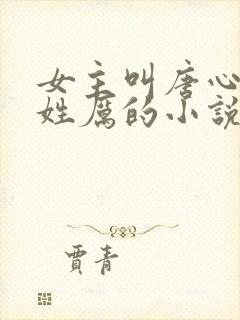 女主叫唐心
姓厲的小說
賈青